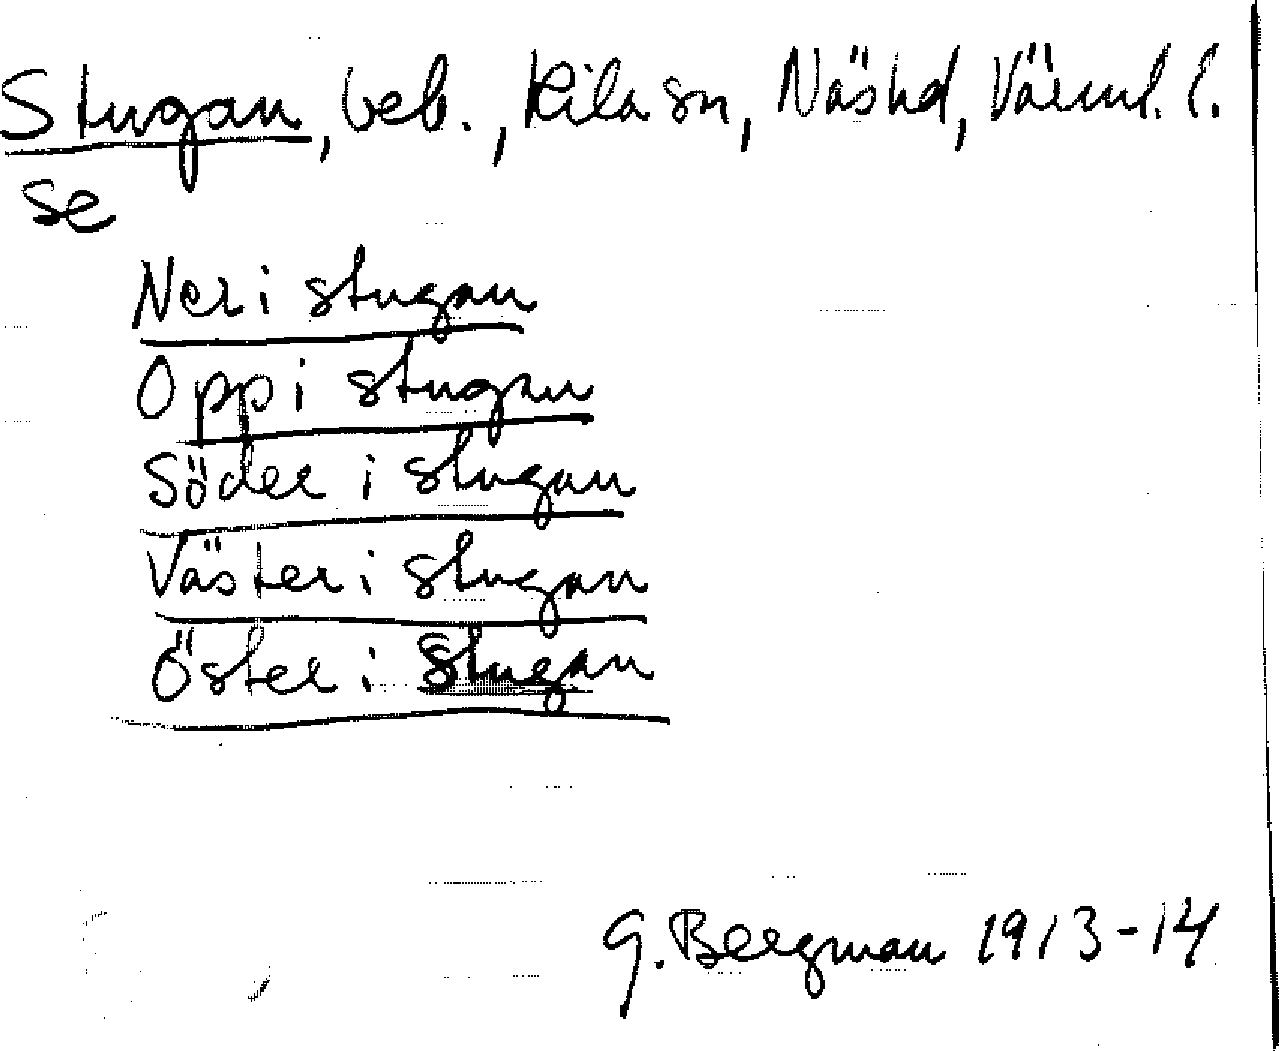 Stugan, beb., Kila sn, Näshd, Värml. l.
se
Ner i stugan
Opp i stugan
Söder i stugan
Väster i stugan
Öster i stugan
G. Bergman 1913-14